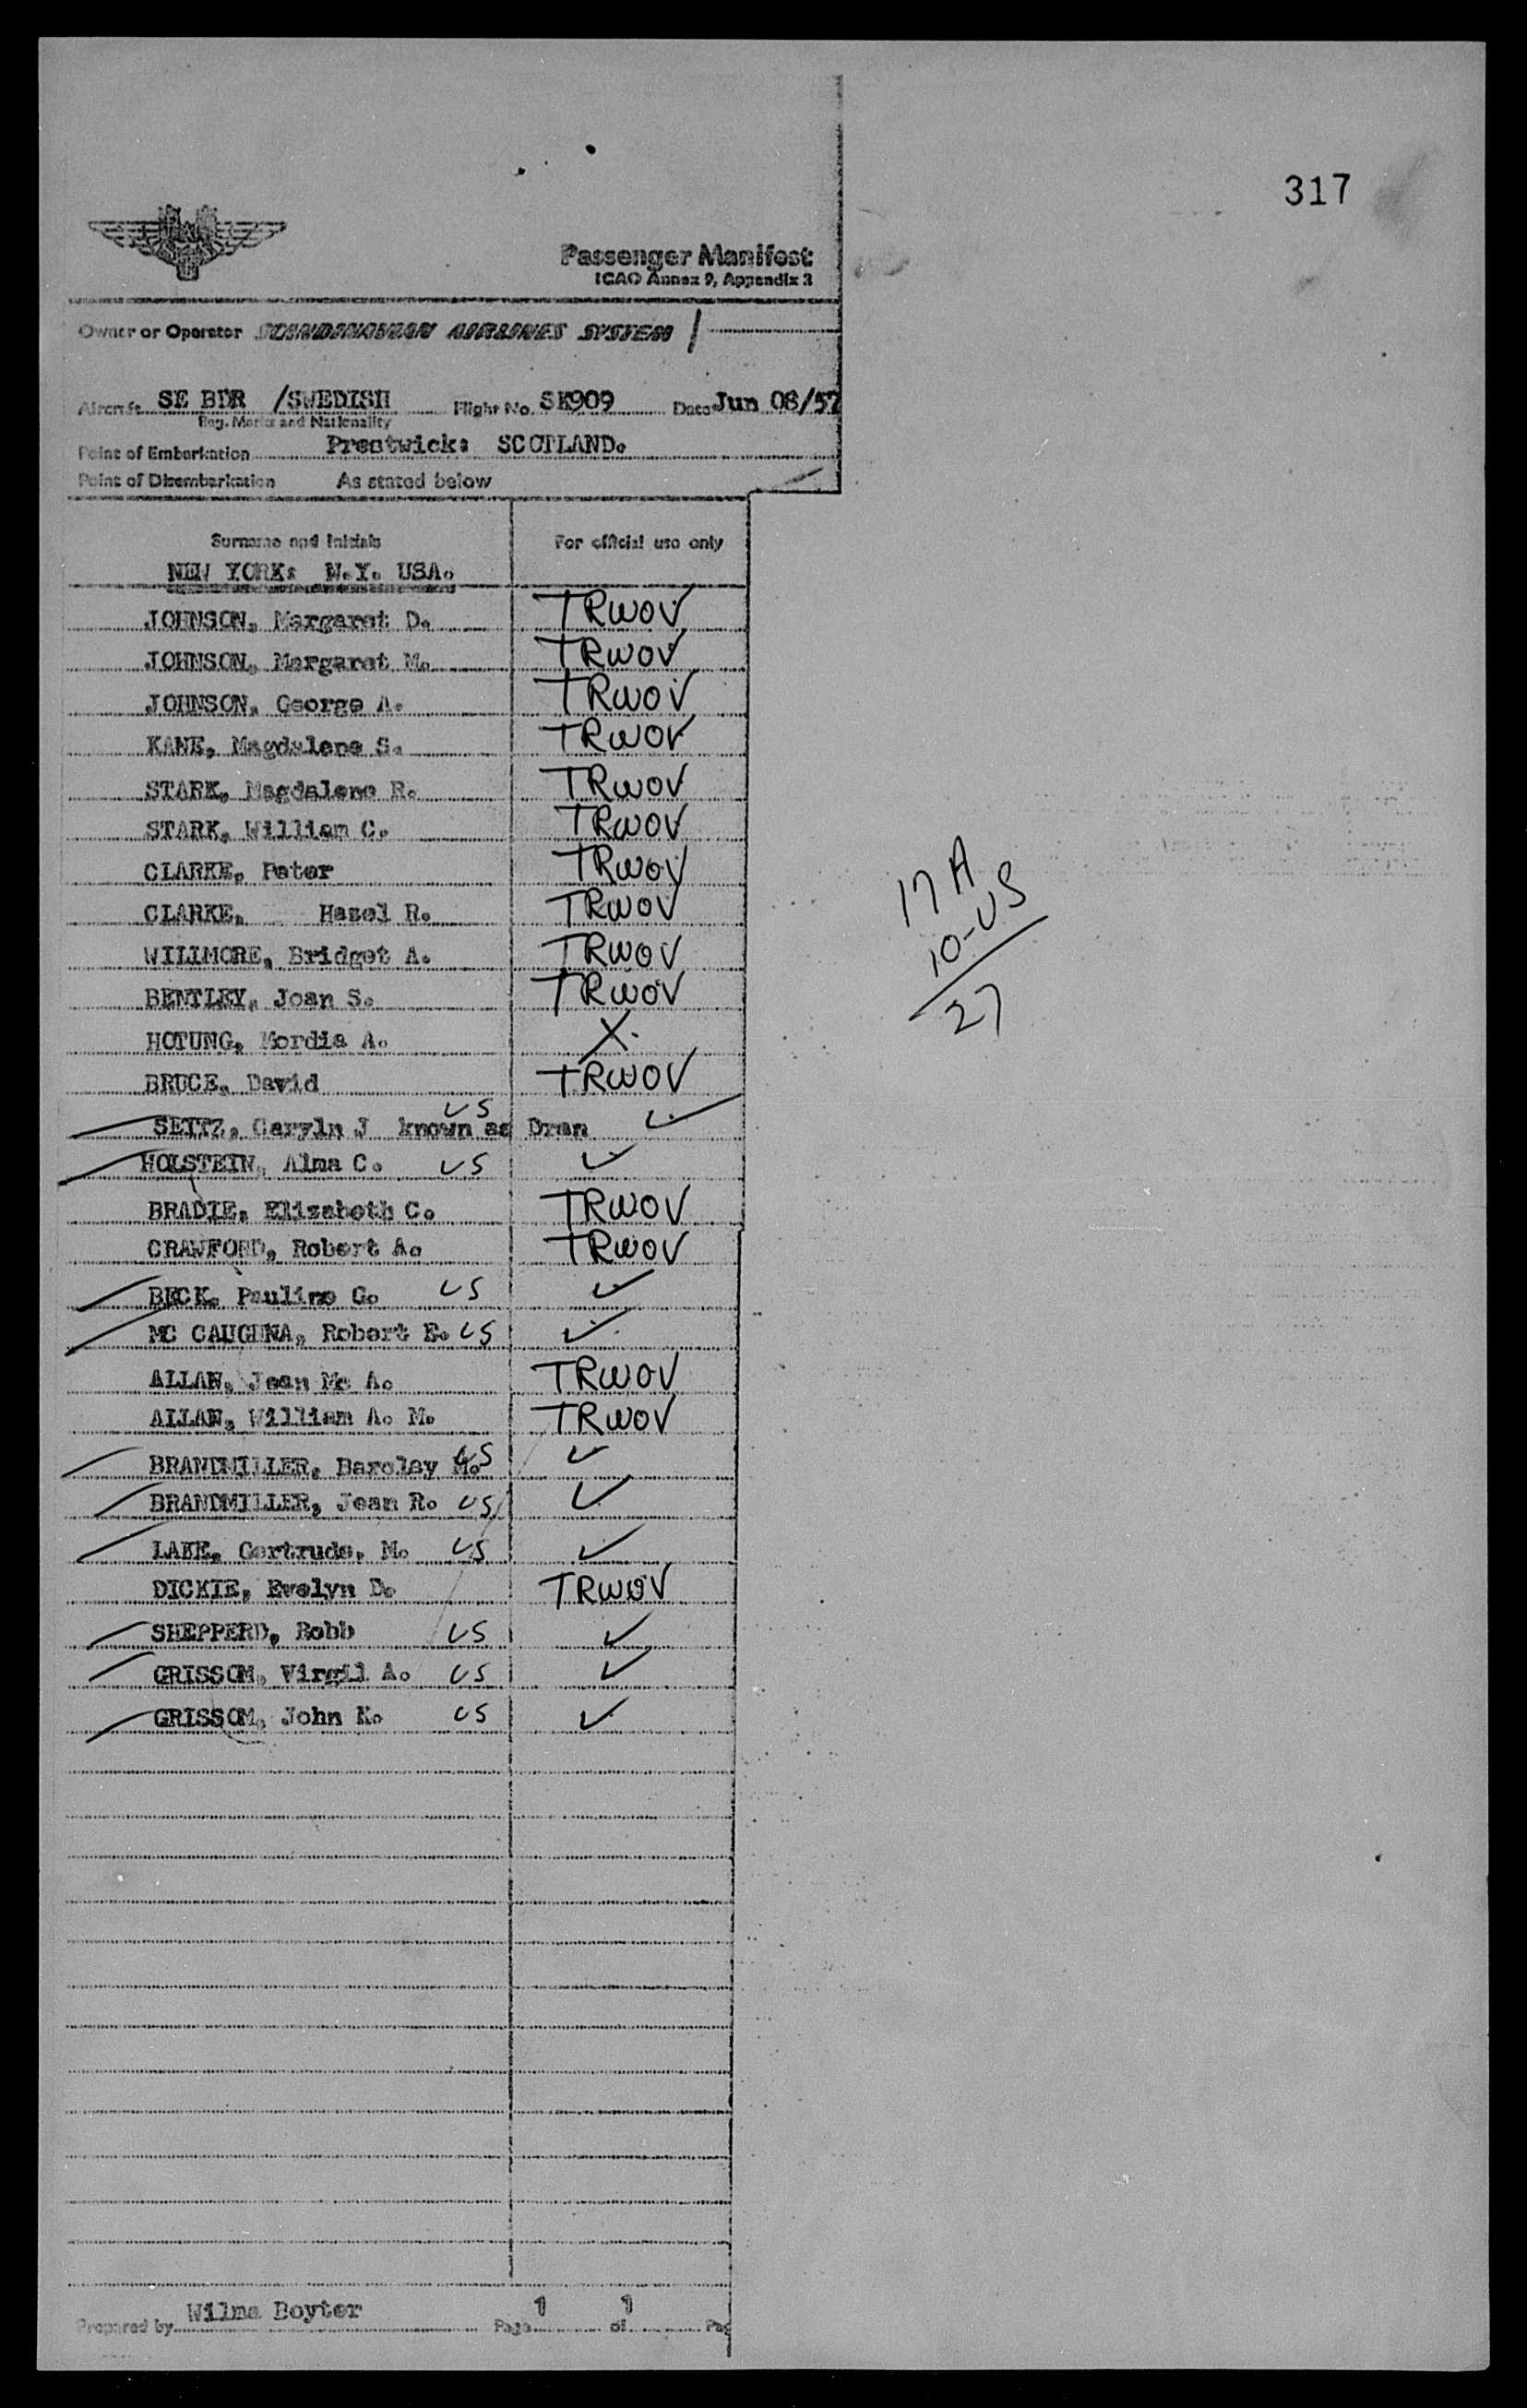 317
Passenger Manifest
ICAO Annex 9, Appendix 3
Owner or Operator SCANDINAVIAN AIRLINES SYSTEM
Aircraft SE BDR /SWEDISH Flight No. SK909 Date Jun 08/57
Reg. Marks and Nationality
Point of Embarkation Prestwick: SCOTLAND.
Point of Disembarkation As stated below
Surname and Initials For official use only
NEW YORK: N.Y. USA.
JOHNSON, Margaret D. TRWOV
JOHNSON, Margaret M. TRWOV
JOHNSON, George A. TRWOV
KANE, Magdalene S. TRWOV
STARK, Magdalene R. TRWOV
STARK, William C. TRWOV
CLARKE, Peter TRWOV
CLARKE, Hazel R. TRWOV
WILLMORE, Bridget A. TRWOV
BENTLEY, Joan S. TRWOV
HOTUNG, Mordia A. X
BRUCE, David TRWOV
SEITZ, Caryln J known as Dran US ✓
HOLSTEIN, Alma C. US ✓
BRADIE, Elizabeth C. TRWOV
CRAWFORD, Robert A. TRWOV
BECK, Pauline G. US ✓
MC CAUGHNA, Robert E. US ✓
ALLAN, Jean Mc A. TRWOV
ALLAN, William A. M. TRWOV
BRANDMILLER, Barclay M. US ✓
BRANDMILLER, Jean R. US ✓
LAKE, Gertrude, M. US ✓
DICKIE, Evelyn D. TRWOV
SHEPPERD, Robb US ✓
GRISSOM, Virgil A. US ✓
GRISSOM, John K. US ✓
17 A
10-US
27
Prepared by Wilma Boyter Page 1 of 1